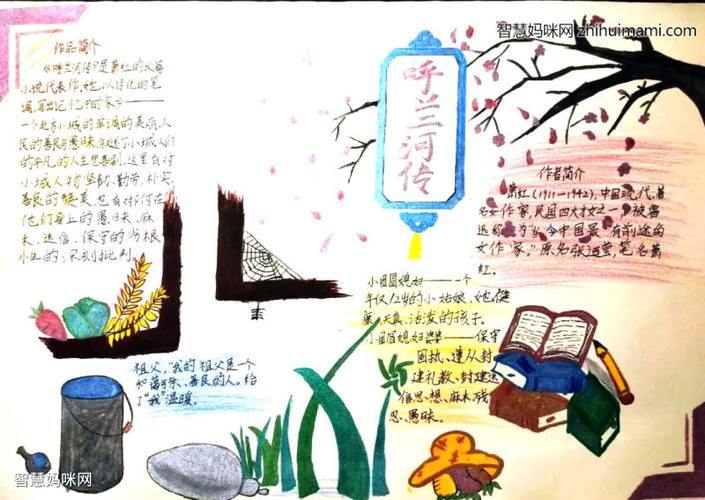 智慧妈咪网 zhihuimami.com
作品简介
《呼兰河传》是萧红的长篇
小说代表作,她以传记的笔
调,写出记忆中的家乡——
一个北方小城的单调的美丽,人
民的善良与愚昧,
的平凡的人生悲喜剧,这里有对
小城人物坚韧、勤劳、朴实、
善良的赞美也有对付在
他们身上的愚昧、麻
木、迷信、保守的劣根
小生的深刻批判。
呼兰河传
作者简介
萧红(1911—1942),中国现代著
名女作家,民国四大才女之一,被
迅称为"当今中国最有前途的
女作家。"原名张迺莹,笔名萧
红。
小团圆媳妇——一个
年仅12岁的小姑娘,她健
康、天真、活泼的孩子。
小团圆媳妇婆婆——保守
固执、遵从封
建礼教、封建迷
信思想、麻木残
忍、愚昧。
祖父,"我的祖父是一个
和蔼可亲、善良的人。给
了"我"温暖
智慧妈咪网
智慧妈咪网